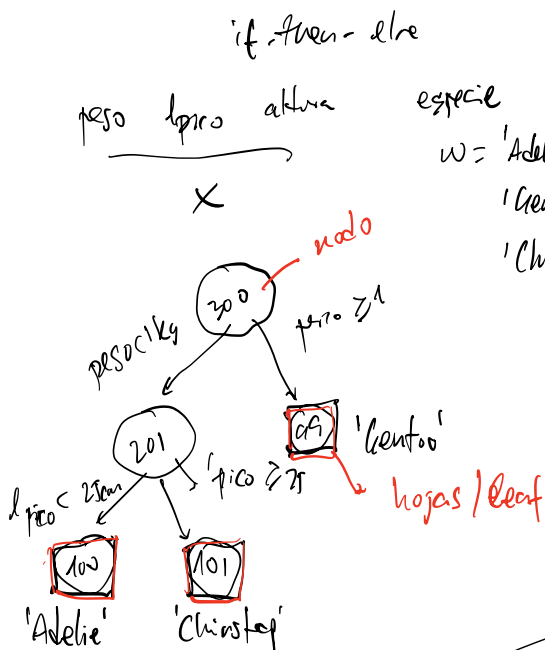 if-then-else
peso lpico altura especie
w = 'Adel
'Gen
'Ch
X
nodo
300
peso<1kg peso ≥1
201 99 'Gentoo'
lpico < 25cm lpico ≥ 25
hojas/leaf
100 101
'Adelie' 'Chinstrap'